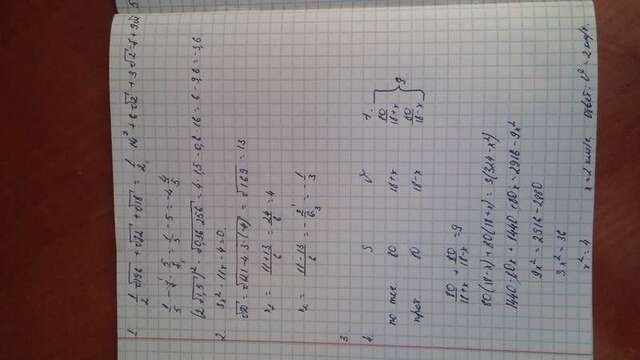 1. 1/2 √196 + √72 + √18 = 1/2 · 14 + 6√2 + 3√2 = 7 + 9√2
1/5 - 7 · 5/7 = 1/5 - 5 = -4 4/5
(2√1,5)² - √0,36·256 = 4 · 1,5 - 0,6 · 16 = 6 - 9,6 = -3,6
2. 3x² - 11x - 4 = 0.
√D = √121-4·3·(-4) = √169 = 13
x₁ = (11+13)/6 = 24/6 = 4
x₂ = (11-13)/6 = -2/6 = -1/3
3.
4. S V t.
по теч. 80 18+x 80/(18+x)
прот. 80 18-x 80/(18-x) } 9
80/(18+x) + 80/(18-x) = 9
80(18-x) + 80(18+x) = 9(324-x²)
1440 - 80x + 1440 + 80x = 2916 - 9x²
9x² = 2916 - 2880
9x² = 36
x² = 4 x = 2 км/ч. ответ: V = 2 км/ч.